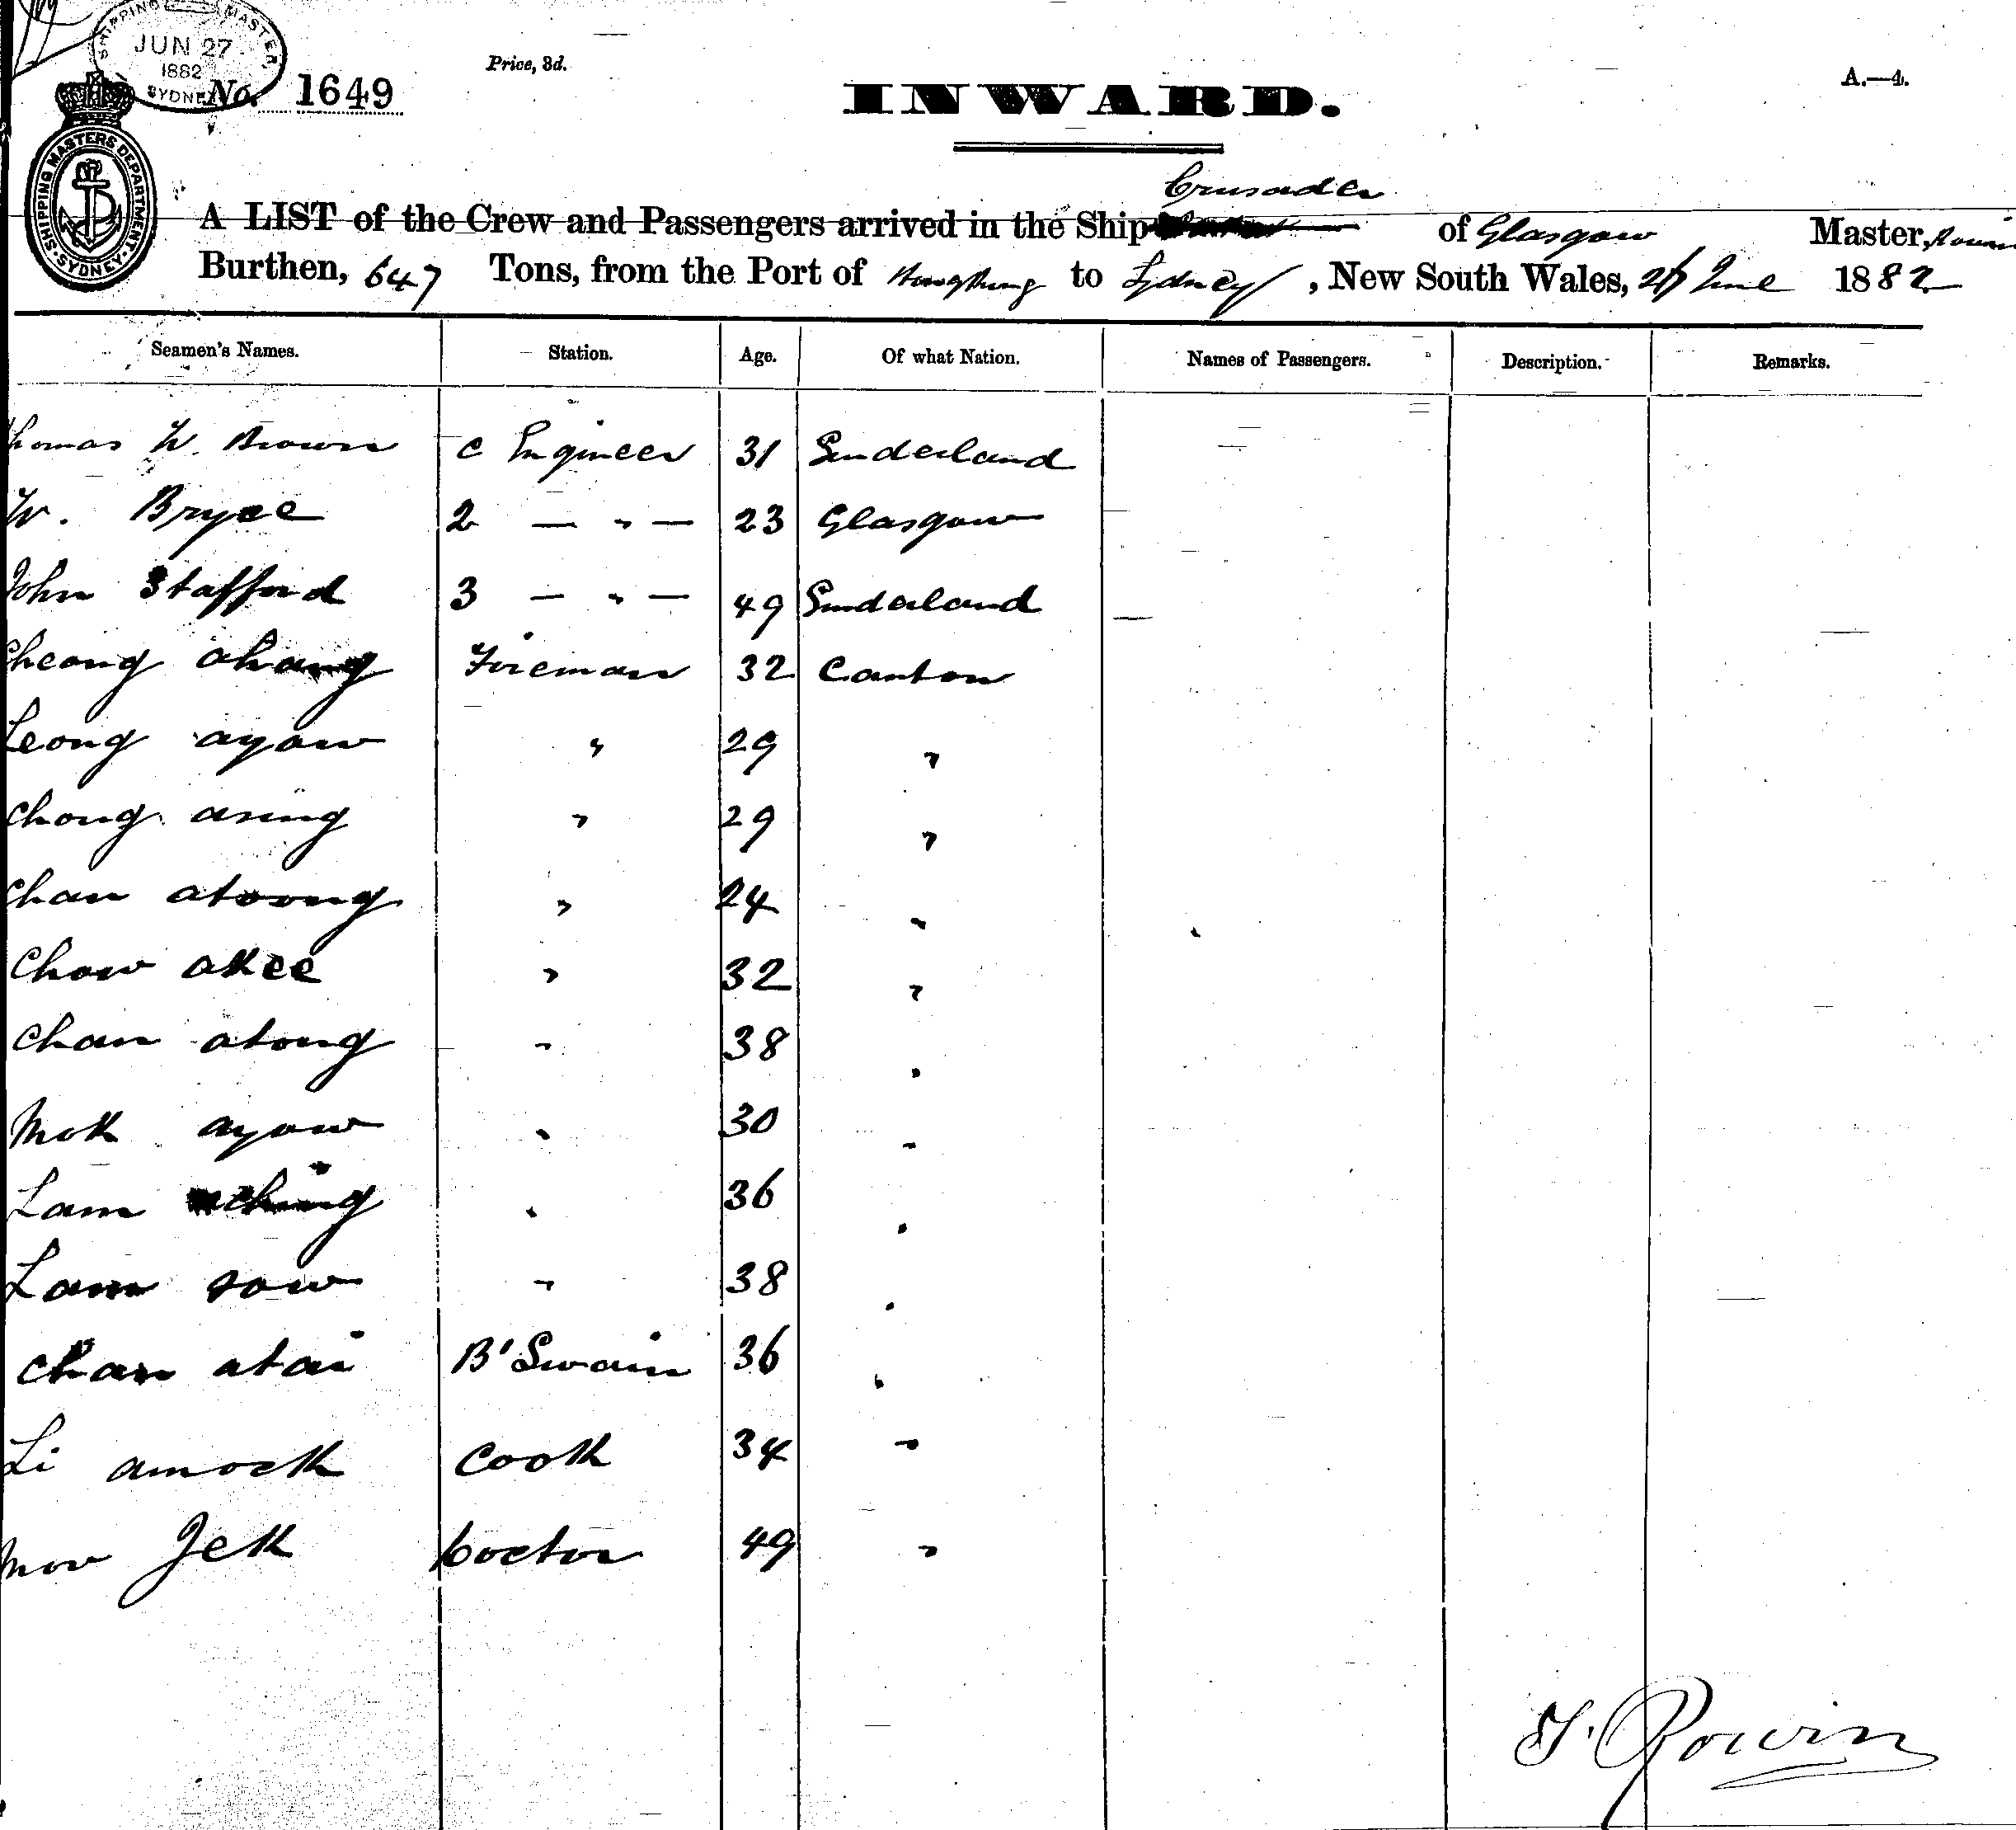 SHIPPING MASTER,
JUN 27
1882
SYDNEY
No. 1649
Price, 3d.
INWARD.
A.—4.
SHIPPING MASTERS DEPARTMENT. SYDNEY.
Crusader
A LIST of the Crew and Passengers arrived in the Ship of Glasgow Master,
Burthen, 647 Tons, from the Port of Hongkong to Sydney, New South Wales, 26 June 1882
Seamen's Names. Station. Age. Of what Nation. Names of Passengers. Description. Remarks.
Thomas W. Brown C Engineer 31 Sunderland
W. Bryce 2 — " — 23 Glasgow
John Stafford 3 — " — 49 Sunderland
Cheong Fireman 32 Canton
Leong ayow " 29 "
Chong asing " 29 "
Chan atoong " 24 "
Chow akee " 32 "
Chan atong " 38 "
Mok ayow " 30 "
Lam ching " 36 "
Lam sow " 38 "
Chan atai B'Swain 36 "
Li amock Cook 34 "
Mow Jek Doctor 49 "
J. Rowin